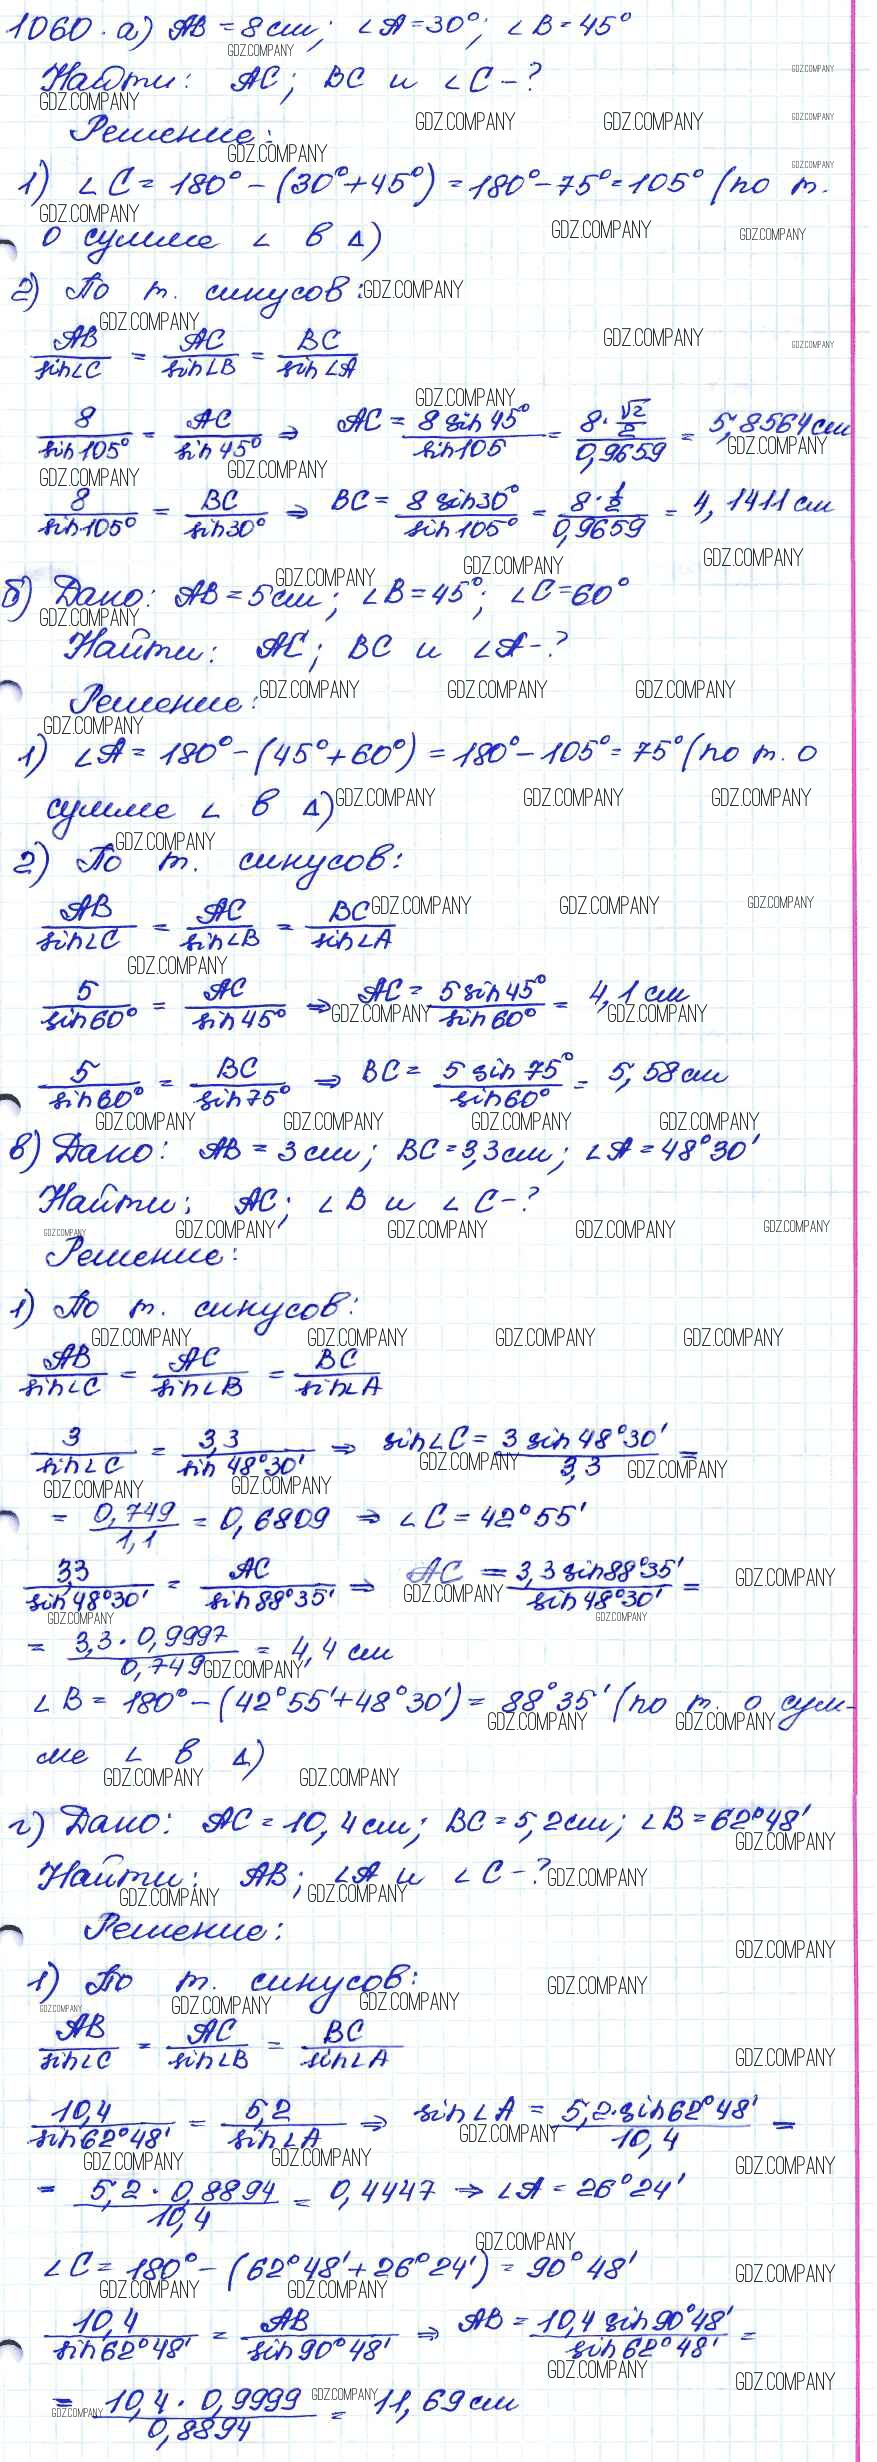 1060. а) AB = 8 см; ∠A = 30°; ∠B = 45°
Найти: AC; BC и ∠C - ?
Решение:
1) ∠C = 180° - (30° + 45°) = 180° - 75° = 105° (по т.
о сумме ∠ в Δ)
2) По т. синусов:
AB/sin∠C = AC/sin∠B = BC/sin∠A
8/sin105° = AC/sin45° ⇒ AC = 8 sin45°/sin105 = 8·(√2/2)/0,9659 = 5,8564 см
8/sin105° = BC/sin30° ⇒ BC = 8 sin30°/sin105° = 8·(1/2)/0,9659 = 4,1411 см
б) Дано: AB = 5 см; ∠B = 45°; ∠C = 60°
Найти: AC; BC и ∠A - ?
Решение:
1) ∠A = 180° - (45° + 60°) = 180° - 105° = 75° (по т. о
сумме ∠ в Δ)
2) По т. синусов:
AB/sin∠C = AC/sin∠B = BC/sin∠A
5/sin60° = AC/sin45° ⇒ AC = 5 sin45°/sin60° = 4,1 см
5/sin60° = BC/sin75° ⇒ BC = 5 sin75°/sin60° = 5,58 см
в) Дано: AB = 3 см; BC = 3,3 см; ∠A = 48°30'
Найти: AC; ∠B и ∠C - ?
Решение:
1) По т. синусов:
AB/sin∠C = AC/sin∠B = BC/sin∠A
3/sin∠C = 3,3/sin48°30' ⇒ sin∠C = 3 sin48°30'/3,3 =
= 0,749/1,1 = 0,6809 ⇒ ∠C = 42°55'
3,3/sin48°30' = AC/sin88°35' ⇒ AC = 3,3 sin88°35'/sin48°30' =
= 3,3 · 0,9997/0,749 = 4,4 см
∠B = 180° - (42°55' + 48°30') = 88°35' (по т. о сум-
ме ∠ в Δ)
г) Дано: AC = 10,4 см; BC = 5,2 см; ∠B = 62°48'
Найти: AB; ∠A и ∠C - ?
Решение:
1) По т. синусов:
AB/sin∠C = AC/sin∠B = BC/sin∠A
10,4/sin62°48' = 5,2/sin∠A ⇒ sin∠A = 5,2·sin62°48'/10,4 =
= 5,2 · 0,8894/10,4 = 0,4447 ⇒ ∠A = 26°24'
∠C = 180° - (62°48' + 26°24') = 90°48'
10,4/sin62°48' = AB/sin90°48' ⇒ AB = 10,4 sin90°48'/sin62°48' =
= 10,4 · 0,9999/0,8894 = 11,69 см
GDZ.COMPANY